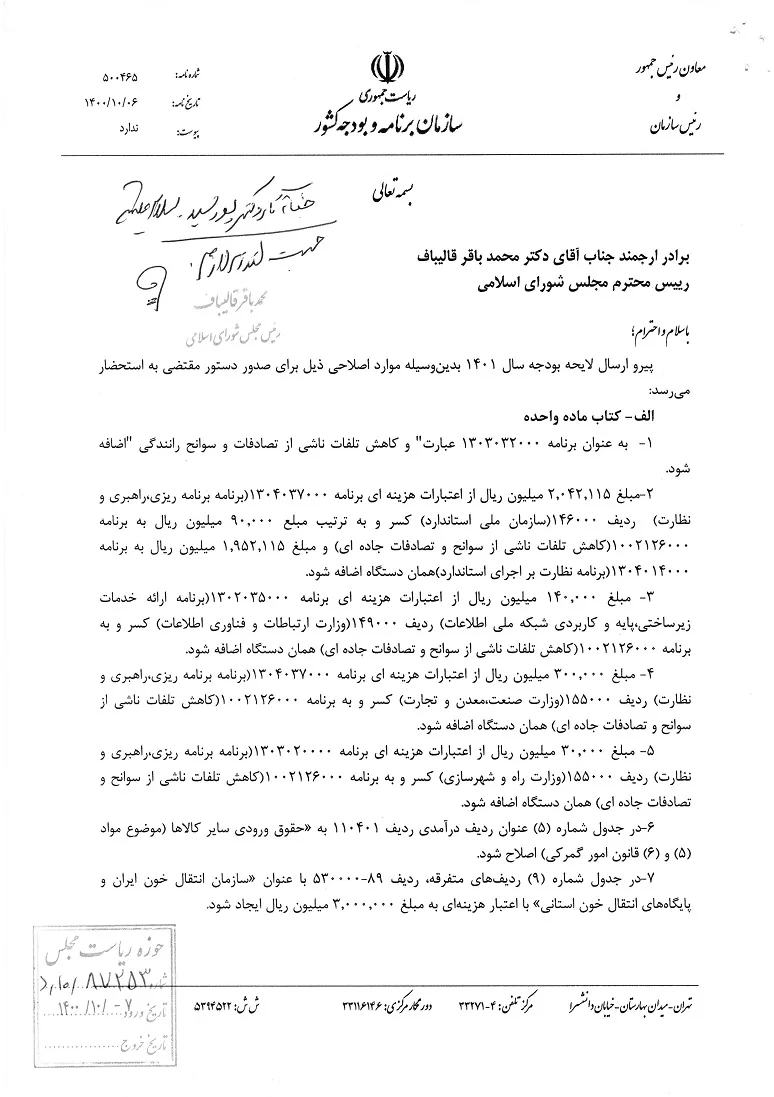 معاون رئیس جمهور
و
رئیس سازمان
ریاست جمهوری
سازمان برنامه و بودجه کشور
شماره نامه: ۵۰۰۴۶۵
تاریخ نامه: ۱۴۰۰/۱۰/۰۶
پیوست: ندارد
بسمه تعالی
جناب آقای دکتر
جهت
محمد باقر قالیباف
رئیس مجلس شورای اسلامی
برادر ارجمند جناب آقای دکتر محمد باقر قالیباف
رییس محترم مجلس شورای اسلامی
باسلام و احترام؛
پیرو ارسال لایحه بودجه سال ۱۴۰۱ بدین‌وسیله موارد اصلاحی ذیل برای صدور دستور مقتضی به استحضار
می‌رسد:
الف- کتاب ماده واحده
۱- به عنوان برنامه ۱۳۰۳۰۳۲۰۰۰ عبارت" و کاهش تلفات ناشی از تصادفات و سوانح رانندگی "اضافه
شود.
۲-مبلغ ۲,۰۴۲,۱۱۵ میلیون ریال از اعتبارات هزینه ای برنامه ۱۳۰۴۰۳۷۰۰۰(برنامه برنامه ریزی،راهبری و
نظارت) ردیف ۱۴۶۰۰۰(سازمان ملی استاندارد) کسر و به ترتیب مبلغ ۹۰,۰۰۰ میلیون ریال به برنامه
۱۰۰۲۱۲۶۰۰۰(کاهش تلفات ناشی از سوانح و تصادفات جاده ای) و مبلغ ۱,۹۵۲,۱۱۵ میلیون ریال به برنامه
۱۳۰۴۰۱۴۰۰۰(برنامه نظارت بر اجرای استاندارد)همان دستگاه اضافه شود.
۳- مبلغ ۱۴۰,۰۰۰ میلیون ریال از اعتبارات هزینه ای برنامه ۱۳۰۲۰۳۵۰۰۰(برنامه ارائه خدمات
زیرساختی،پایه و کاربردی شبکه ملی اطلاعات) ردیف ۱۴۹۰۰۰(وزارت ارتباطات و فناوری اطلاعات) کسر و به
برنامه ۱۰۰۲۱۲۶۰۰۰(کاهش تلفات ناشی از سوانح و تصادفات جاده ای) همان دستگاه اضافه شود.
۴- مبلغ ۳۰۰,۰۰۰ میلیون ریال از اعتبارات هزینه ای برنامه ۱۳۰۴۰۳۷۰۰۰(برنامه برنامه ریزی،راهبری و
نظارت) ردیف ۱۵۵۰۰۰(وزارت صنعت،معدن و تجارت) کسر و به برنامه ۱۰۰۲۱۲۶۰۰۰(کاهش تلفات ناشی از
سوانح و تصادفات جاده ای) همان دستگاه اضافه شود.
۵- مبلغ ۳۰,۰۰۰ میلیون ریال از اعتبارات هزینه ای برنامه ۱۳۰۳۰۲۰۰۰۰(برنامه برنامه ریزی،راهبری و
نظارت) ردیف ۱۵۵۰۰۰(وزارت راه و شهرسازی) کسر و به برنامه ۱۰۰۲۱۲۶۰۰۰(کاهش تلفات ناشی از سوانح و
تصادفات جاده ای) همان دستگاه اضافه شود.
۶-در جدول شماره (۵) عنوان ردیف درآمدی ردیف ۱۱۰۴۰۱ به «حقوق ورودی سایر کالاها (موضوع مواد
(۵) و (۶) قانون امور گمرکی) اصلاح شود.
۷-در جدول شماره (۹) ردیف‌های متفرقه، ردیف ۸۹-۵۳۰۰۰۰ با عنوان «سازمان انتقال خون ایران و
پایگاه‌های انتقال خون استانی» با اعتبار هزینه‌ای به مبلغ ۳,۰۰۰,۰۰۰ میلیون ریال ایجاد شود.
حوزه ریاست مجلس
شماره ۸۷۲۵۳
تاریخ ورود ۱۴۰۰/۱۰/۰۷
تاریخ خروج
تهران-میدان بهارستان-خیابان دانشسرا مرکز تلفن: ۴-۳۳۲۷۱ دورنگار مرکزی: ۳۳۱۱۶۱۴۶ ش ش: ۵۳۹۴۵۲۲